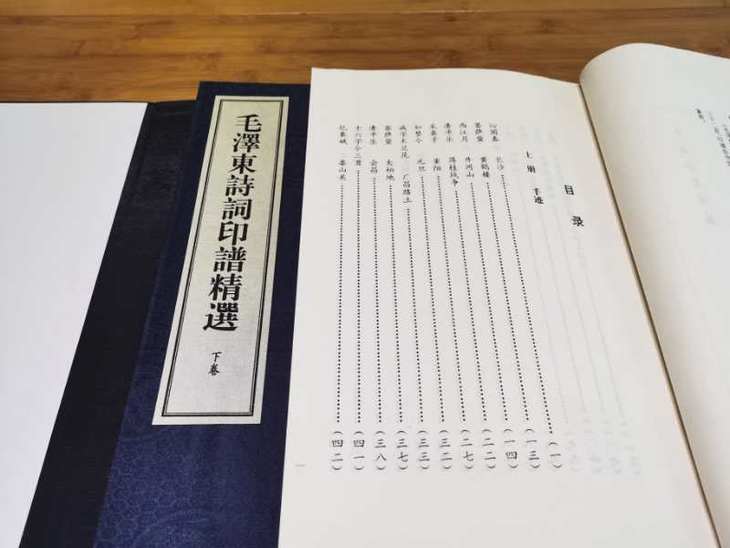 毛澤東詩詞印譜精選
下卷
目录
上册 手迹
沁园春 长沙……(一)
菩萨蛮 黄鹤楼……(一三)
西江月 井冈山……(一四)
清平乐 蒋桂战争……(二二)
采桑子 重阳……(二七)
如梦令 元旦……(三二)
减字木兰花 广昌路上……(三三)
菩萨蛮 大柏地……(三七)
清平乐 会昌……(三八)
十六字令三首……(四一)
忆秦娥 娄山关……(四二)